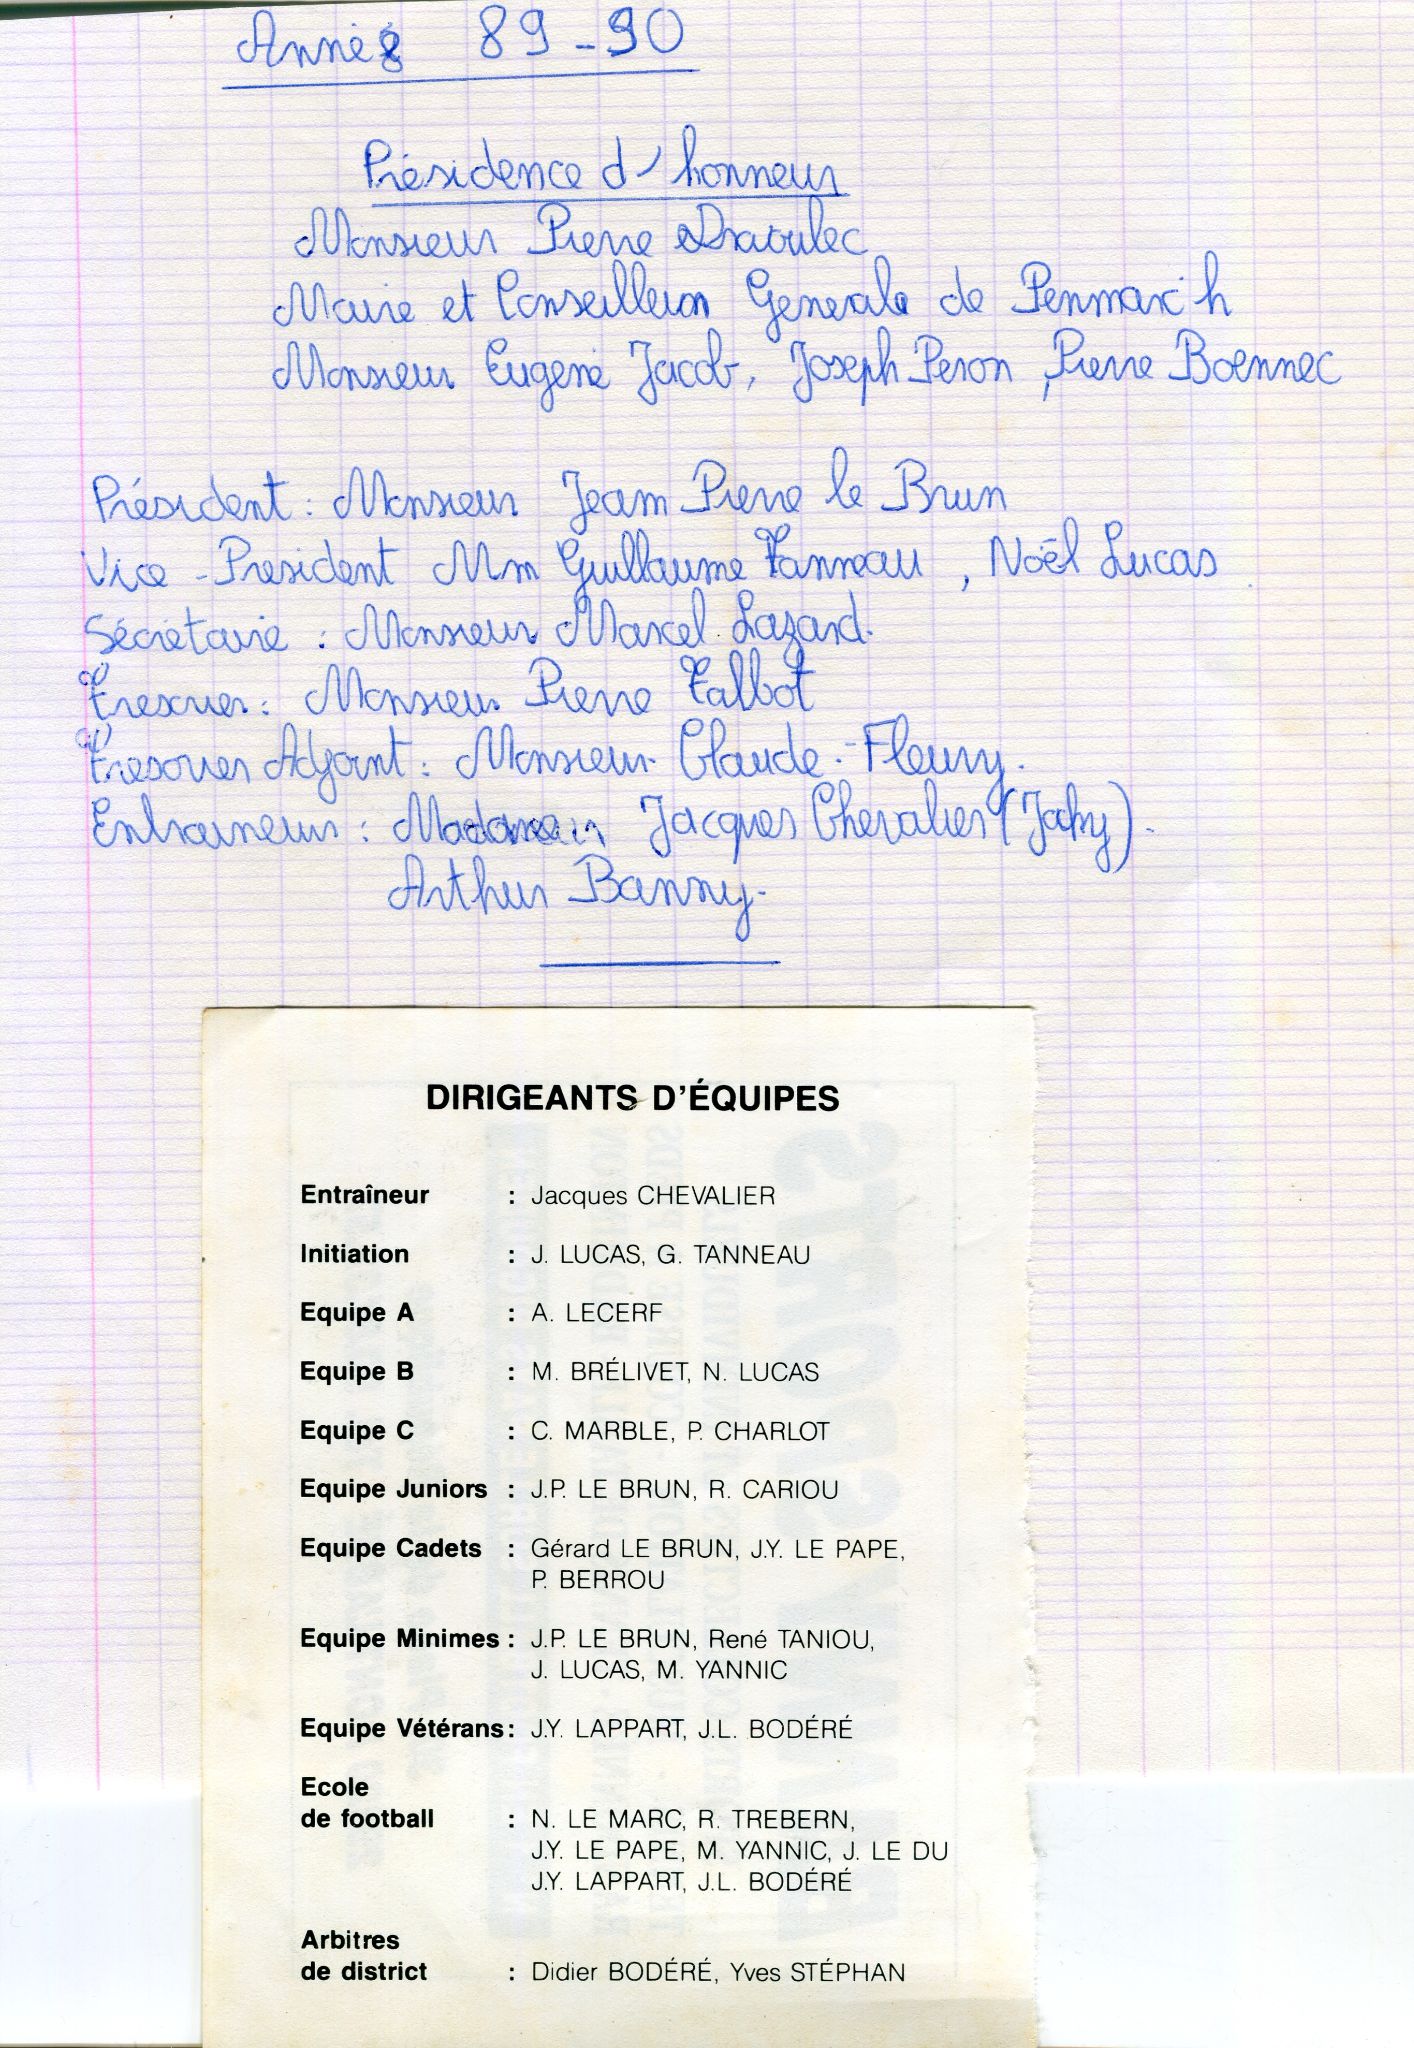 Année 89-90
Présidence d'honneur
Monsieur Pierre Draoulec
Maire et Conseiller Generale de Penmarc'h
Monsieur Eugene Jacob, Joseph Peron, Pierre Boennec
Président : Monsieur Jean Pierre le Brun
Vice-President Mm Guillaume Tanneau, Noël Lucas
Sécrétaire : Monsieur Marcel Lazard.
Tresorier : Monsieur Pierre Talbot
Tresorier Adjoint : Monsieur Claude-Fleury.
Entraineur : Jacques Chevalier (Jacky).
Arthur Banny.
DIRIGEANTS D'ÉQUIPES
Entraîneur : Jacques CHEVALIER
Initiation : J. LUCAS, G. TANNEAU
Equipe A : A. LECERF
Equipe B : M. BRÉLIVET, N. LUCAS
Equipe C : C. MARBLE, P. CHARLOT
Equipe Juniors : J.P. LE BRUN, R. CARIOU
Equipe Cadets : Gérard LE BRUN, J.Y. LE PAPE,
P. BERROU
Equipe Minimes : J.P. LE BRUN, René TANIOU,
J. LUCAS, M. YANNIC
Equipe Vétérans : J.Y. LAPPART, J.L. BODÉRÉ
Ecole
de football : N. LE MARC, R. TREBERN,
J.Y. LE PAPE, M. YANNIC, J. LE DU
J.Y. LAPPART, J.L. BODÉRÉ
Arbitres
de district : Didier BODÉRÉ, Yves STÉPHAN